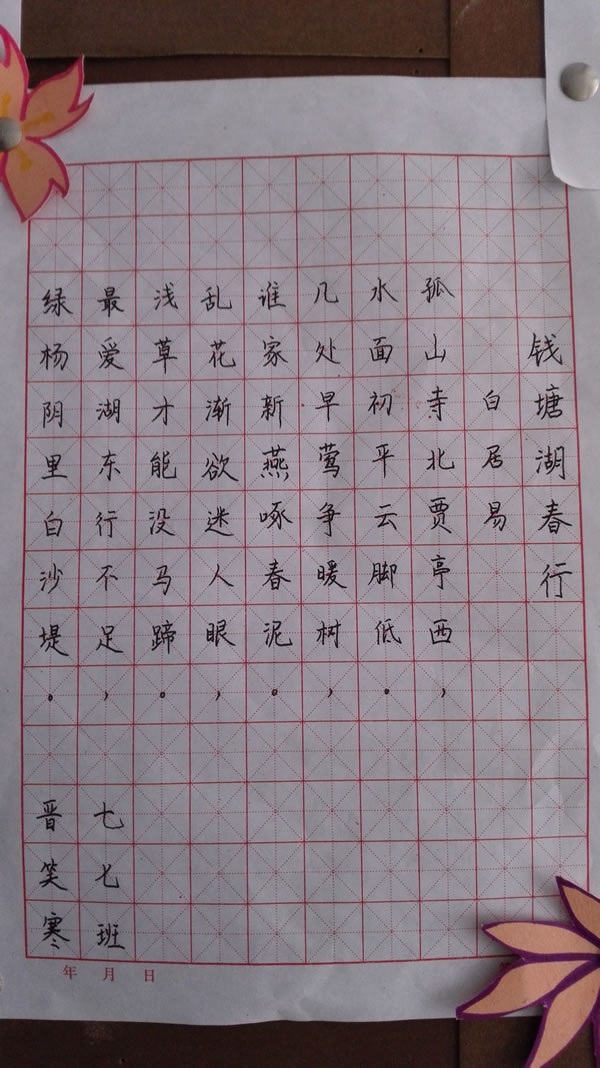 钱塘湖春行
白居易
孤山寺北贾亭西，
水面初平云脚低。
几处早莺争暖树，
谁家新燕啄春泥。
乱花渐欲迷人眼，
浅草才能没马蹄。
最爱湖东行不足，
绿杨阴里白沙堤。
七七班
晋笑寒
年 月 日